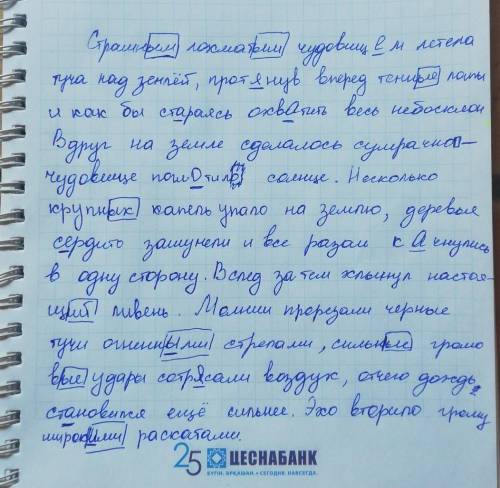 Страшным лохматым чудовищем летела
туча над землёй, протянув вперед темные лапы
и как бы стараясь охватить весь небосклон
Вдруг на земле сделалось сумрачно-
чудовище поглотило солнце. Несколько
крупных капель упало на землю, деревья
сердито зашумели и все разом качнулись
в одну сторону. Вслед за тем хлынул настоя-
щий ливень. Молнии прорезали черные
тучи огненными стрелами, сильные громо
вые удары сотрясали воздух, отчего дождь
становился ещё сильнее. Эхо вторило грому
широкими раскатами.
25 ЦЕСНАБАНК
БҮГІН. ӘРҚАШАН. • СЕГОДНЯ. НАВСЕГДА.